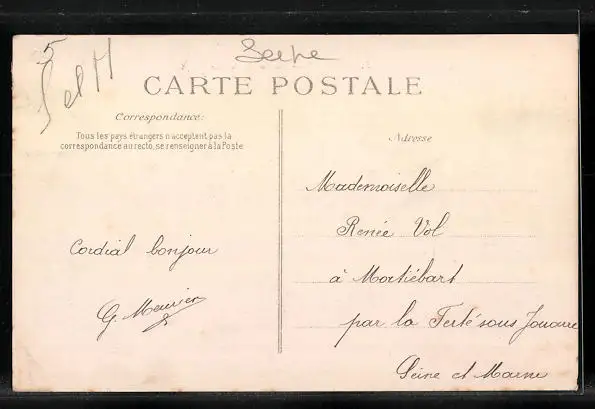 5
S et M
CARTE POSTALE
Correspondance:
Tous les pays étrangers n'acceptent pas la
correspondance au recto, se renseigner à la Poste
Adresse
Cordial bonjour
G. Meunier
Mademoiselle
Renée Vol
à Mortiébart
par la Ferté sous Jouarre
Seine et Marne